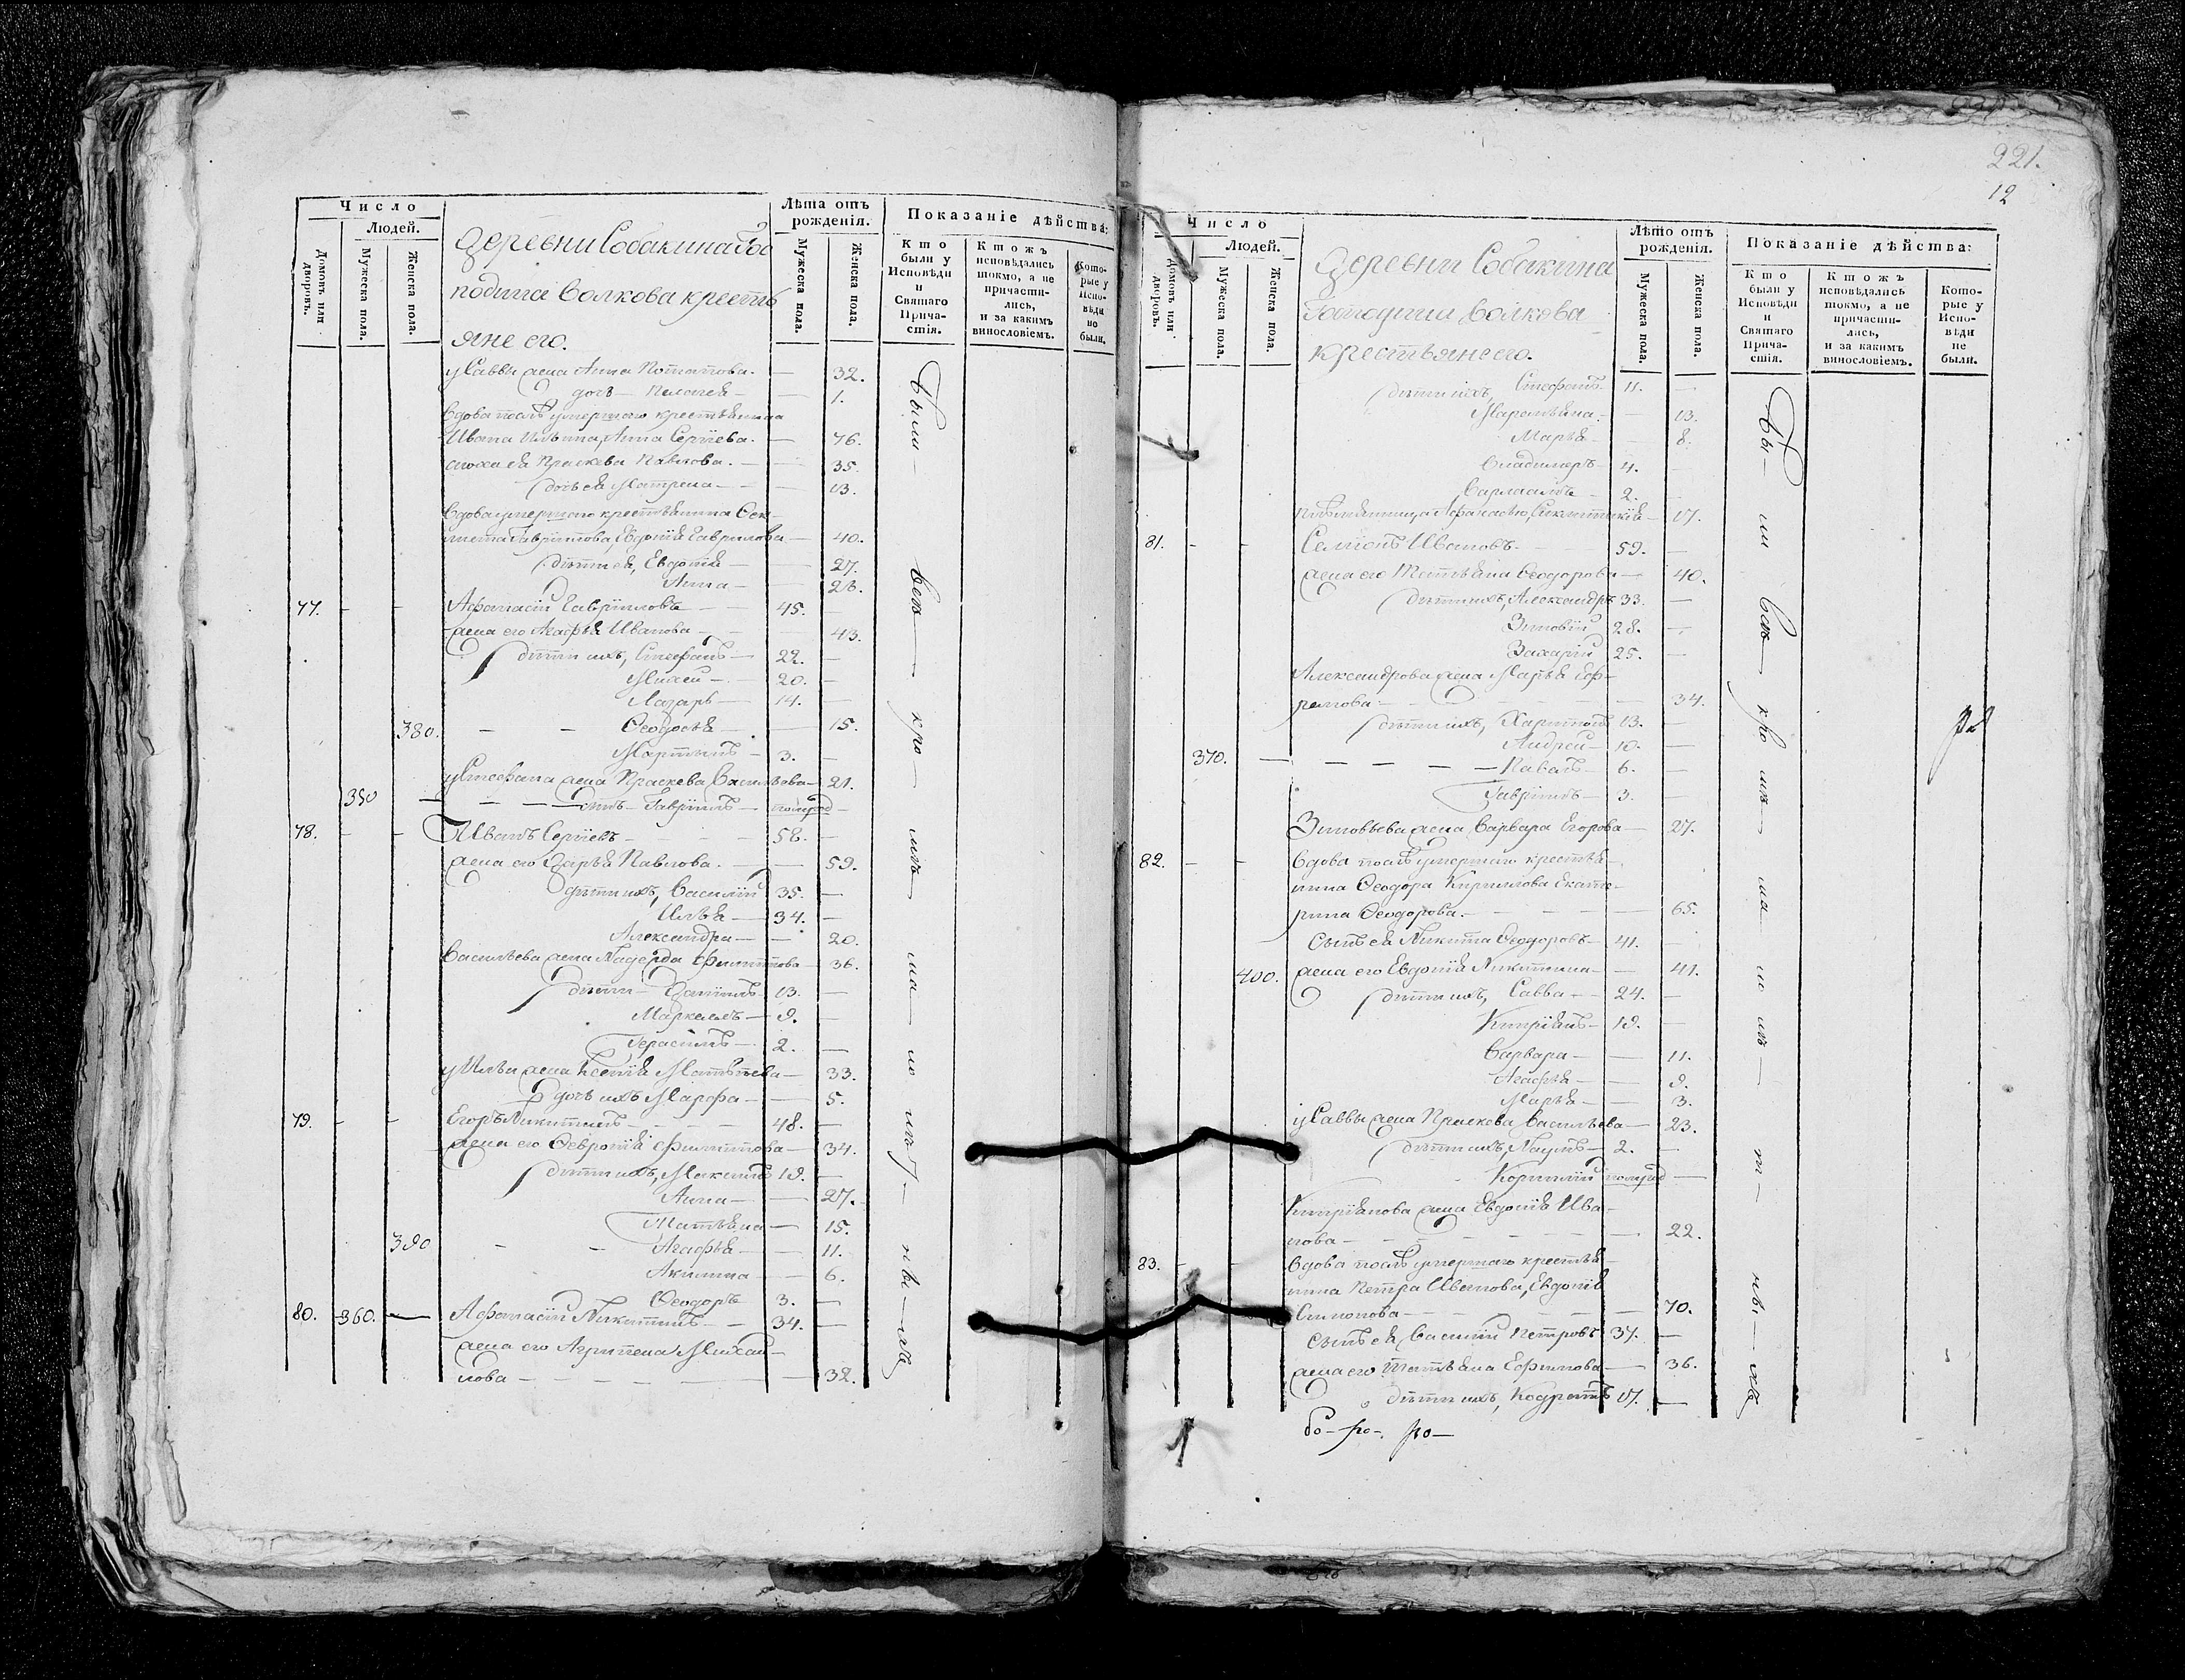 Число
Людей.
Домовъ или дворовъ.
Мужеска пола.
Женска пола.
Деревни Собакина Гос
подина Волкова кресть
яне его.
Лѣта отъ рожденія.
Мужеска пола.
Женска пола.
Показаніе дѣйства:
Кто были у Исповѣди и Святаго Причастія.
Ктожъ исповѣдались токмо, а не причастились, и за какимъ винословіемъ.
Которые у Исповѣди не были.
у Саввы жена Анна Потапова. — 32.
дочь — Пелагея — 1.
Вдова послѣ умершаго крестьянина
Ивана Ильина, Анна Сергіева. — 76.
сноха ея Праскева Павлова. — 35.
дочь ея Матрена — 13.
Вдова умершаго крестьянина
Гаврилова, Евдокія Гаврилова — 40.
дѣти ея, Евдокія — 27.
Анна — 28.
77. Афанасій Гавріиловъ — 45.
жена его Агафья Иванова — 43.
дѣти ихъ, Стефанъ — 22.
Михей — 20.
Лазарь — 14.
380. Ѳеодосья — 15.
Мартинъ — 3.
у Стефана жена Праскева Васильева — 21.
350 сынъ Гавріилъ — полугод
78. Иванъ Сергіевъ — 58.
жена его Дарья Павлова. — 59.
дѣти ихъ, Василій 35.
Илья — 34.
Александра — 20.
Васильева жена Надежда Филиппова — 36.
дѣти — Даніилъ 13.
Маркеллъ — 9.
Герасимъ — 2.
у Ильи жена Ксенія Матвѣева — 33.
дочь ихъ Марфа — 5.
79. Егоръ Никитинъ — 48.
жена его Ѳевронія Филиппова — 34.
дѣти ихъ, Максимъ 19.
Анна — 27.
Татьяна — 15.
390 Агафья — 11.
Акилина — 6.
Ѳеодоръ 3.
80. 360. Афанасій Никитинъ — 34.
жена его Агрипена Михай-
лова — 32.
Были — всѣ — кро — мѣ — ма — ло — лѣт — ны — хъ
221.
12
Число
Людей.
Домовъ или дворовъ.
Мужеска пола.
Женска пола.
Деревни Собакина
Господина Волкова
крестьяне его.
Лѣто отъ рожденія.
Мужеска пола.
Женска пола.
Показаніе дѣйства:
Кто были у Исповѣди и Святаго Причастія.
Ктожъ исповѣдались токмо, а не причастились, и за какимъ винословіемъ.
Которые у Исповѣди не были.
дѣти ихъ, Стефанъ 11.
Марамьяна — 13.
Марья — 8.
Владимеръ — 4.
Варлаамъ — 2.
Афанасью, 17.
81. Семіонъ Ивановъ — 59.
жена его Татьяна Ѳеодорова — 40.
дѣти ихъ, Александръ 33.
Зиновій 28.
Захарій 25.
Александрова жена Марья Еф-
ремова — 34.
дѣти ихъ, Харитонъ 13.
Андрей — 10.
370. Павелъ — 6.
Гавріилъ — 3.
Зиновьева жена, Варвара Егорова — 27.
82. Вдова послѣ умершаго крестья-
нина Ѳеодора Кириллова Екате-
рина Ѳеодорова. — 65.
Сынъ ея Никита Ѳеодоровъ — 41.
400. жена его Евдокія Никитина — 41.
дѣти ихъ, Савва — 24.
Кипріянъ — 19.
Варвара — 11.
Агафья — 9.
Марья — 3.
у Саввы жена Праскева Васильева — 23.
дѣти ихъ, Наумъ — 2.
Корнилій полугод
Кипріянова жена Евдокія Ива-
нова — 22.
83. Вдова послѣ умершаго крестья-
нина Петра Иванова, Евдокія
Симонова — 70.
Сынъ ея Василій Петровъ 37.
жена его Татьяна Ефимова — 36.
дѣти ихъ, Кодратъ 17.
Бы — ли всѣ — кро — мѣ — ма — ло — лѣ — т — ны — хъ